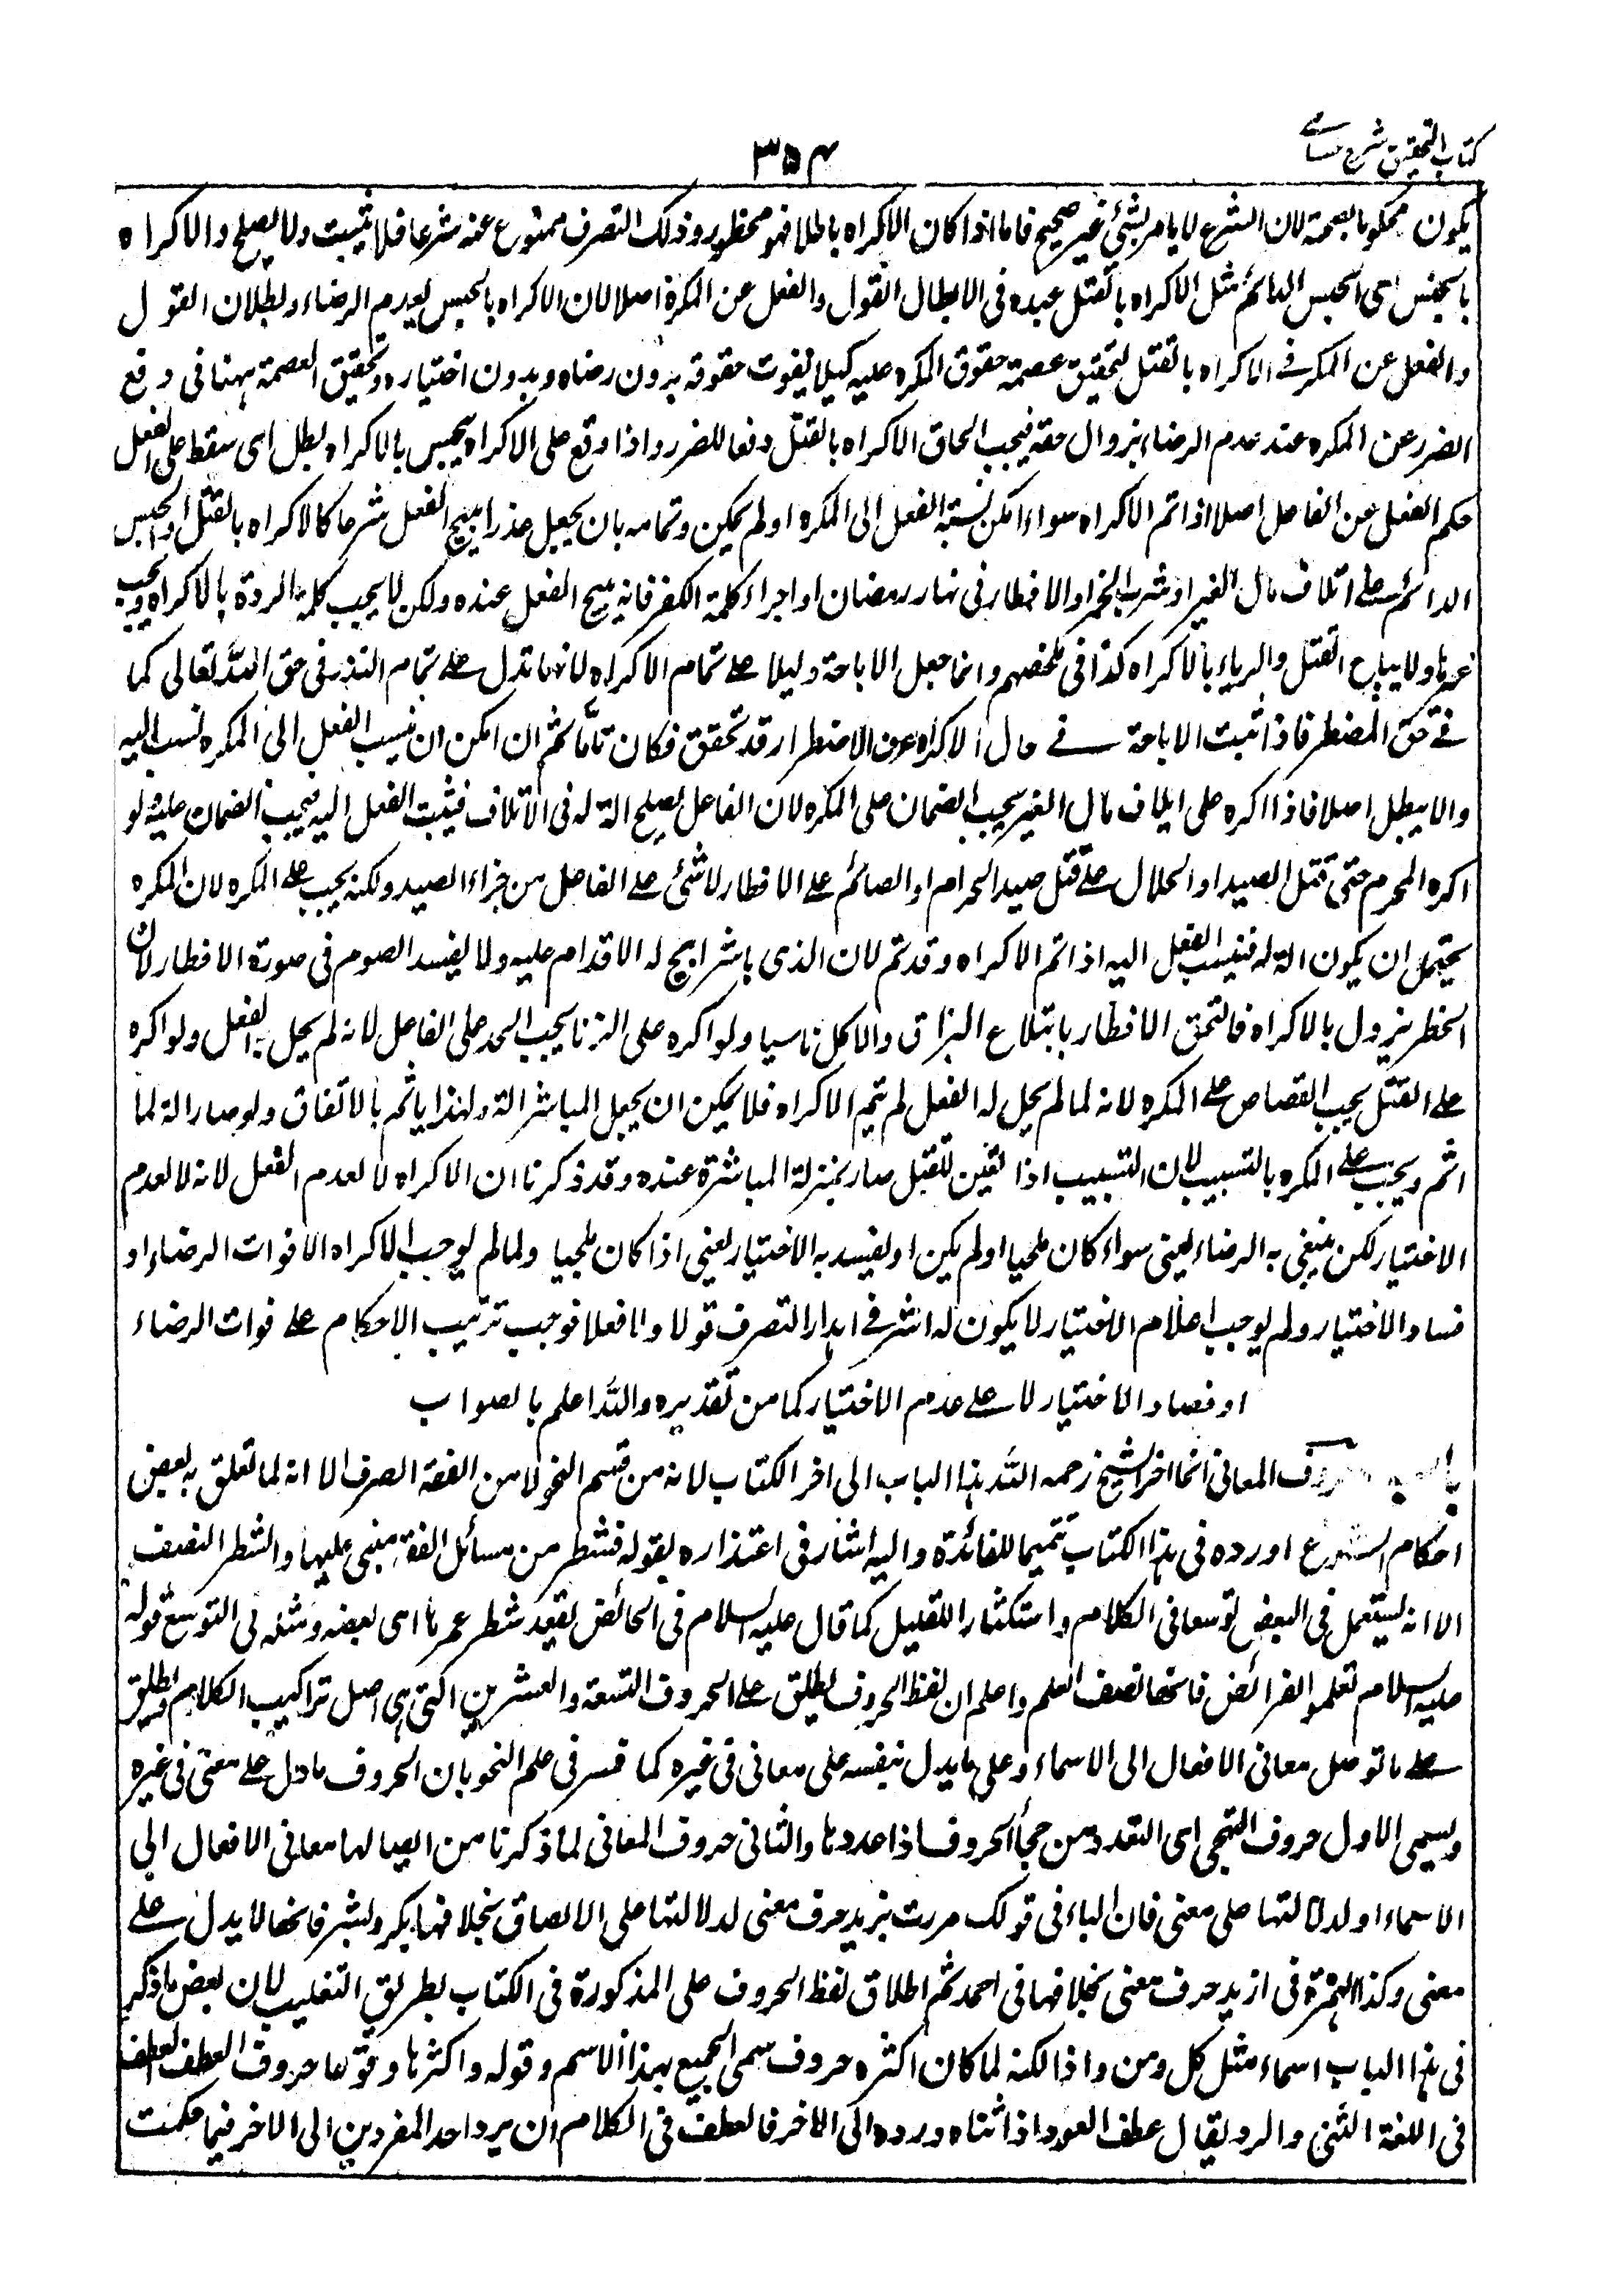 كتاب التحقيق شرح حسامى
٣٥٤
يكون محكوما بصحته لان الشرع لا يامر بشئ غير صحيح فاما اذا كان الاكراه باطلا فهو محظور وذلك التصرف ممنوع عنه شرعا فلا يثبت ولا يصلح والاكراه
بالحبس اى الحبس الدائم مثل الاكراه بالقتل عبده فى الابطال القول والفعل عن المكره اصلا لان الاكراه بالحبس يعدم الرضاء وبطلان القول
والفعل عن المكره فى الاكراه بالقتل لتحقيق عصمة حقوق المكره عليه كيلا يفوت حقوقه بدون رضاه وبدون اختياره وتحقيق العصمة ههنا فى دفع
الضرر عن المكره عند عدم الرضاء بزوال حقه فيجب الحاق الاكراه بالقتل دفعا للضرر واذا وقع على الاكراه بحبس بالاكراه بطل اى سقط على الفعل
حكم الفعل عن الفاعل اصلا اذا تم الاكراه سواء امكن نسبة الفعل الى المكره او لم يمكن وتمامه بان يجعل عذرا يبيح الفعل شرعا كالاكراه بالقتل او الحبس
الدائم على اتلاف مال الغير او شرب الخمر او الافطار فى نهار رمضان او اجراء كلمة الكفر فانه يبيح الفعل عنده ولكن لا يجب كلمة الردة بالاكراه ويجب
غيرها ولا يباح القتل والرياء بالاكراه كذا فى ملخصهم وانما جعل الاباحة دليلا على تمام الاكراه لانها تدل على تمام العذر فى حق الله تعالى كما
فى حق المضطر فاذا ثبت الاباحة فى حال الاكراه عرف الاضطرار قد تحقق فكان تاما ثم ان امكن ان ينسب الفعل الى المكره نسب اليه
والا يبطل اصلا فاذا اكره على اتلاف مال الغير يجب الضمان على المكره لان الفاعل يصلح الة له فى الاتلاف فيثبت الفعل اليه فيجب الضمان عليه ولو
اكره المحرم حتى قتل الصيد او الحلال على قتل صيد الحرام او الصائم على الافطار لا شئ على الفاعل من جزاء الصيد ولكنه يجب على المكره لان المكره
يحتمل ان يكون الة له فينسب الفعل اليه اذا تم الاكراه وقد تم لان الذى باشر ابيح له الاقدام عليه ولا يفسد الصوم فى صورة الافطار لان
الحظر يزول بالاكراه فالتحق الافطار بابتلاع البزاق والاكل ناسيا ولو اكره على الزنا يجب الحد على الفاعل لانه لم يحل به الفعل ولو اكره
على القتل يجب القصاص على المكره لانه لما لم يحل له الفعل لم يتم الاكراه فلا يمكن ان يجعل المباشر الة ولهذا ياثم بالاتفاق ولو صار الة لما
اثم ويجب على المكره بالتسبيب لان التسبيب اذا تعين للقتل صار بمنزلة المباشرة عنده وقد ذكرنا ان الاكراه لا لعدم الفعل لانه لا لعدم
الاختيار لكن ينتفى به الرضاء يعنى سواء كان ملجيا او لم يكن او يفسد به الاختيار يعنى اذا كان ملجيا ولما لم يوجب الاكراه الا فوات الرضاء او
فساد الاختيار ولم يوجب اعدام الاختيار لا يكون له اثر فى اهدار التصرف قولا ولا فعلا فوجب ترتيب الاحكام على فوات الرضاء
او فساد الاختيار لا على عدم الاختيار كما من تقديره والله اعلم بالصواب
باب حروف المعانى انما اخر الشيخ رحمه الله هذا الباب الى اخر الكتاب لانه من قسم النحو لا من الفقه الصرف الا انه لما تعلق به بعض
احكام الشرع اورده فى هذا الكتاب تتميما للفائدة واليه اشار فى اعتذاره بقوله فشطر من مسائل الفقه مبنى عليها والشطر النصف
الا انه يستعمل فى البعض توسعا فى الكلام واستكثارا للقليل كما قال عليه السلام فى الحائض تقعد شطر عمرها اى بعضه ومثله فى التوسع قوله
عليه السلام تعلموا الفرائض فانها نصف العلم واعلم ان لفظ الحروف يطلق على الحروف التسعة والعشرين التى هى اصل تراكيب الكلام ويطلق
على ما توصل معانى الافعال الى الاسماء وعلى ما يدل بنفسه على معانى فى غيره كما فسر فى علم النحو بان الحروف ما دل على معنى فى غيره
ويسمى الاول حروف التهجى اى التعدد من هجأ الحروف اذا عددها والثانى حروف المعانى لما ذكرنا من ايصالها معانى الافعال الى
الاسماء او لدلالتها على معنى فان الباء فى قولك مررت بزيد حرف معنى لدلالتها على الالصاق بخلافها بكر وبشر فانها لا يدل على
معنى وكذا الهمزة فى ازيد حرف معنى بخلافها فى احمد ثم اطلاق لفظ الحروف على المذكورة فى الكتاب بطريق التغليب لان بعض ما ذكر
فى هذا الباب اسماء مثل كل ومن واذا لكنه لما كان اكثره حروف سمى الجميع بهذا الاسم وقوله واكثرها وقوعا حروف العطف العطف
فى اللغة الثنى والرد يقال عطف العود اذا ثناه ورده الى الاخر فالعطف فى الكلام ان يرد احد المفردين الى الاخر فيما حكمت